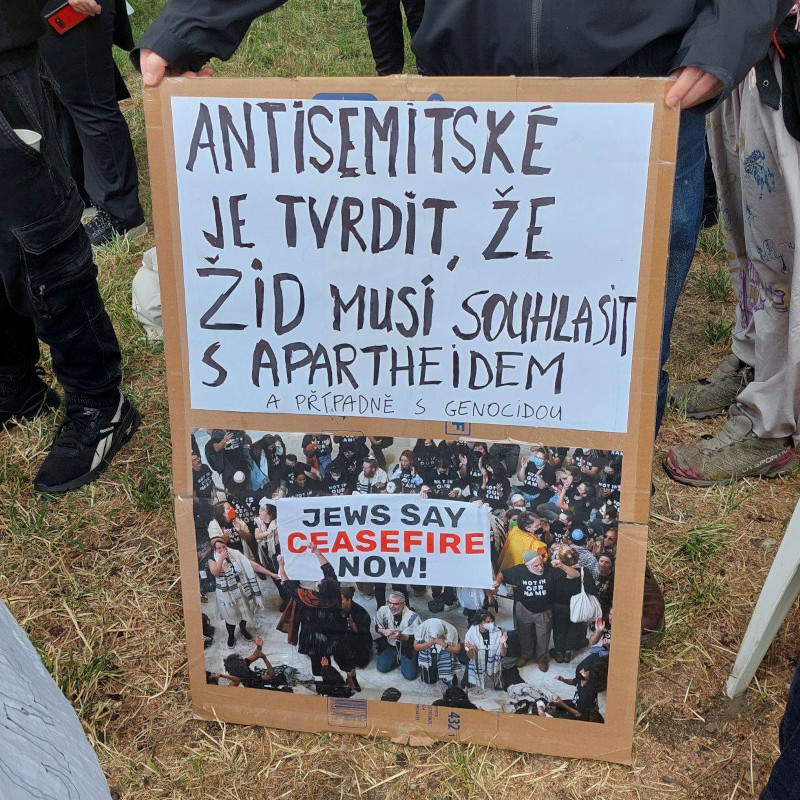 ANTISEMITSKÉ
JE TVRDIT, ŽE
ŽID MUSÍ SOUHLASIT
S APARTHEIDEM
A PŘÍPADNĚ S GENOCIDOU
JEWS SAY
CEASEFIRE
NOW!
NOT IN
OUR
NAME
432